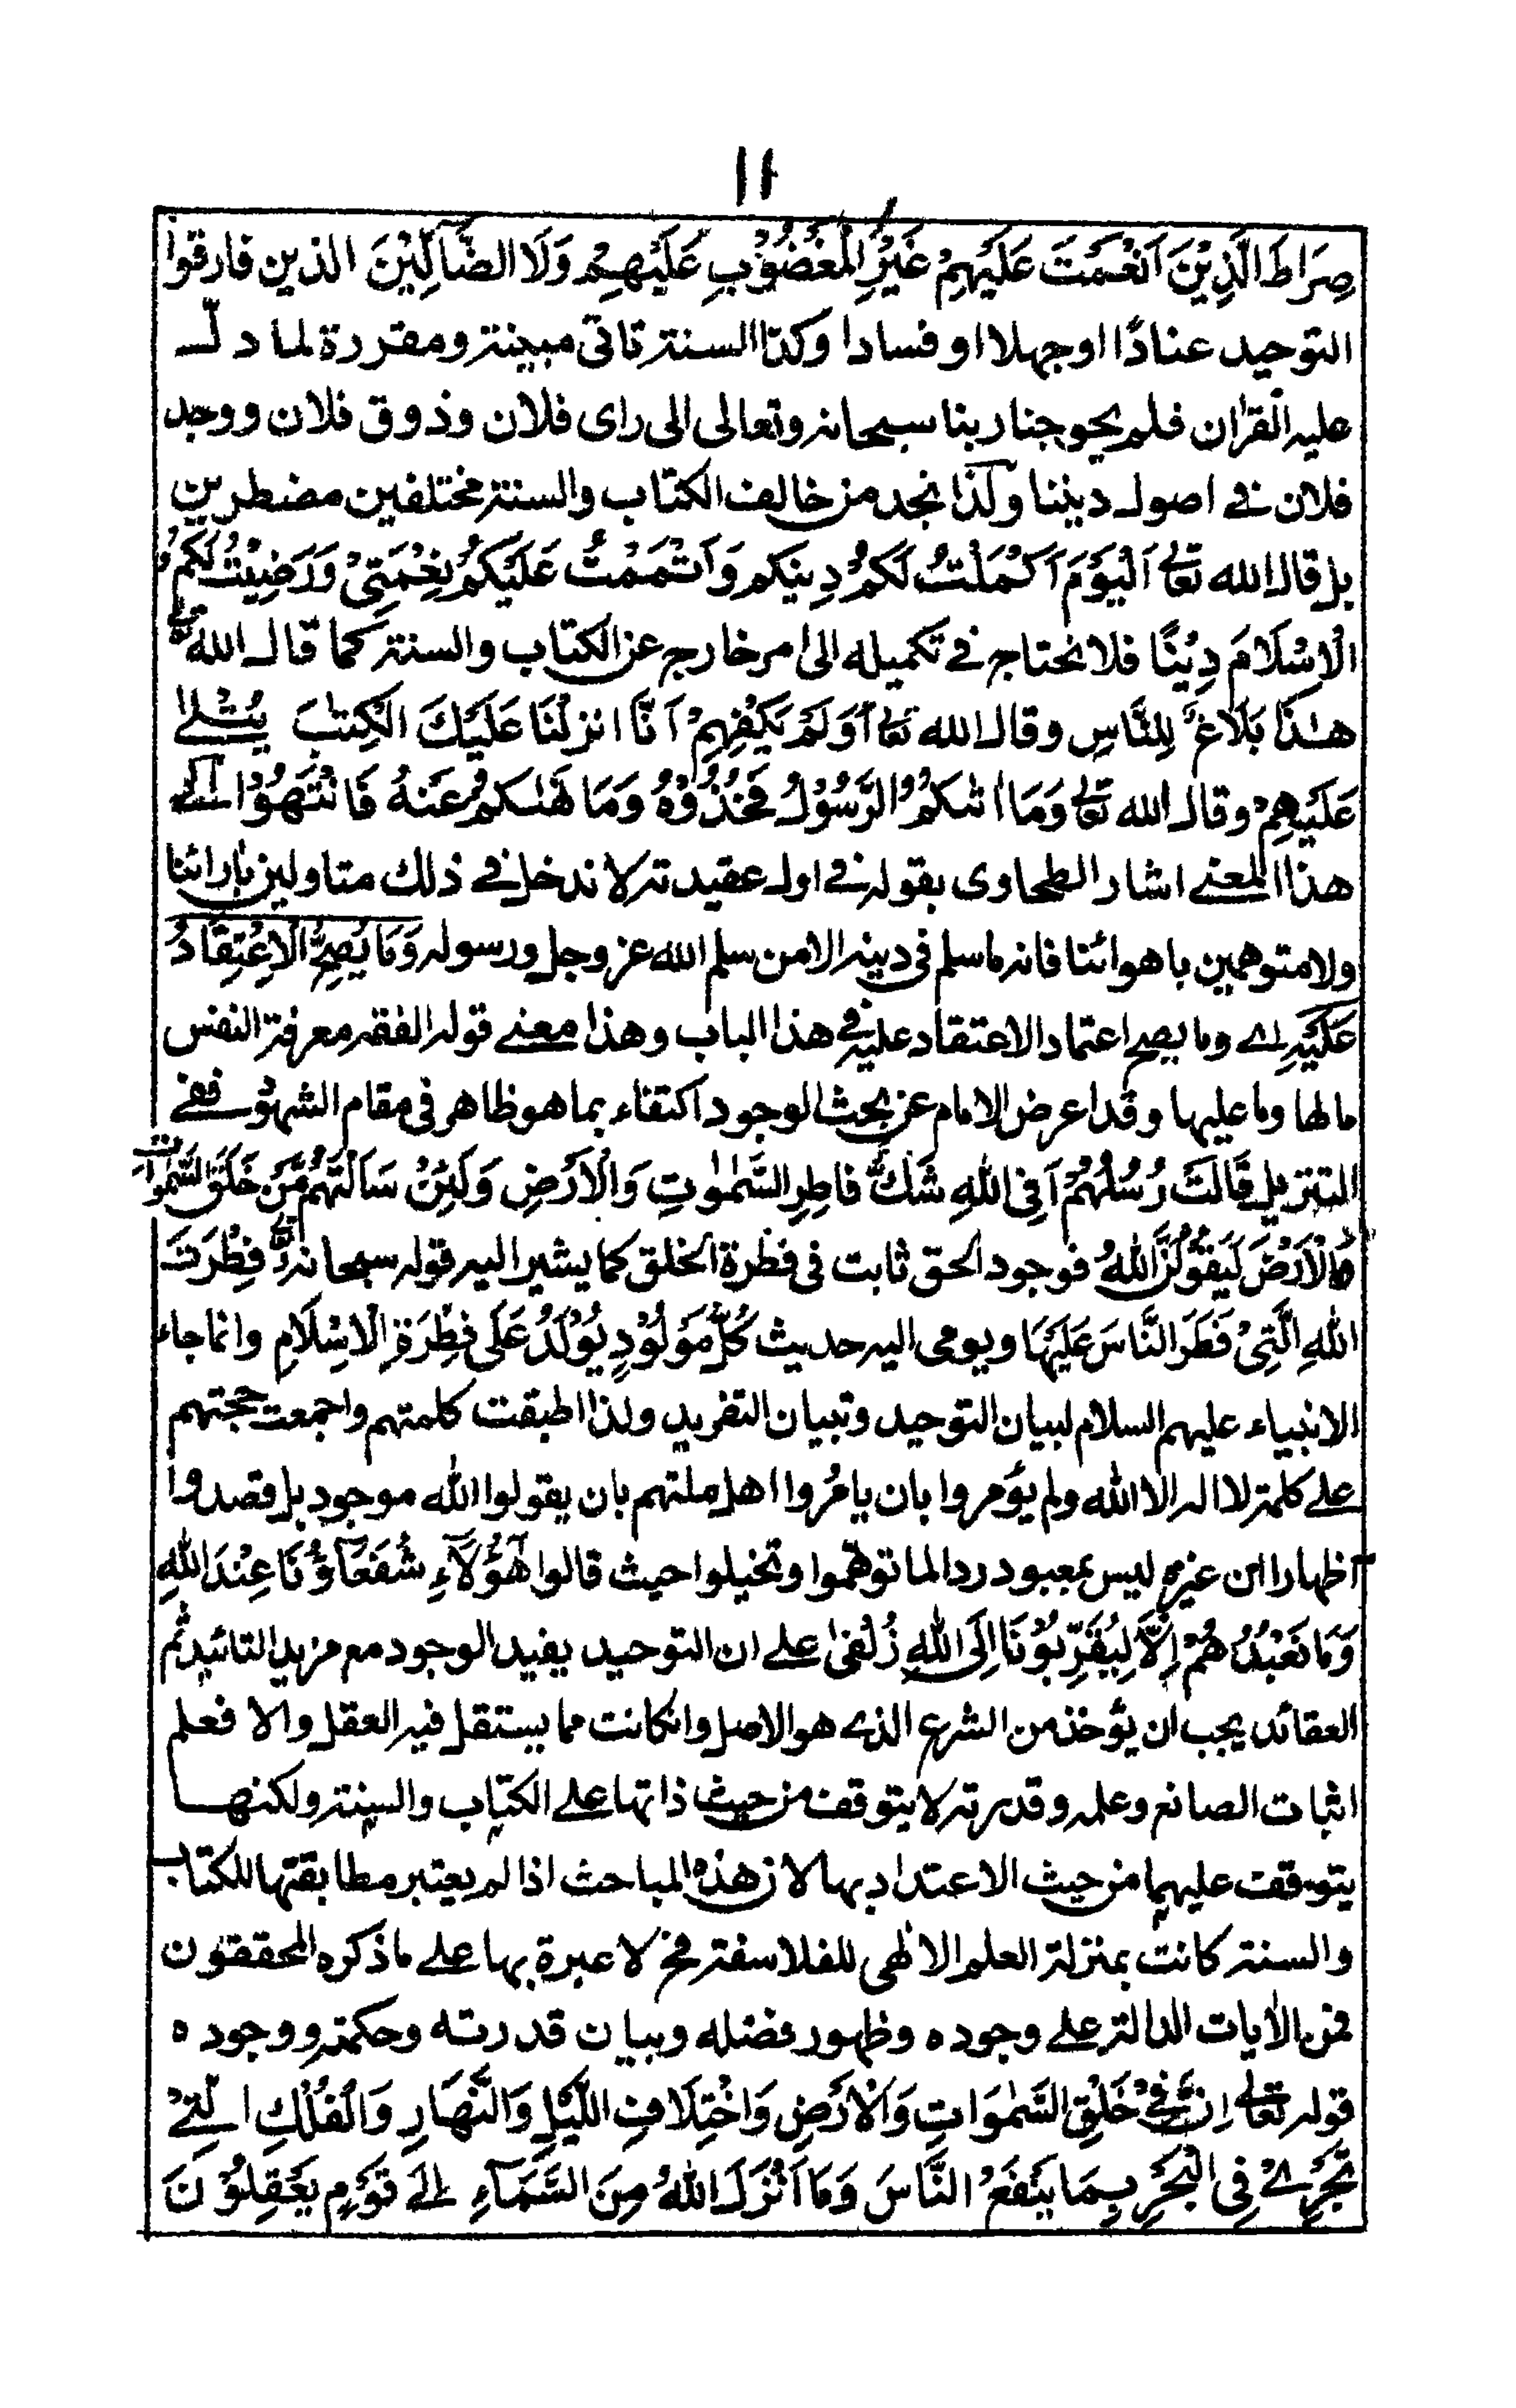 ١١
صِرَاطَ الَّذِيْنَ اَنْعَمْتَ عَلَيْهِمْ غَيْرِ الْمَغْضُوْبِ عَلَيْهِمْ وَلَا الضَّآلِّيْنَ الذين فارقوا
التوحيد عنادًا او جهلا او فسادا وكذا السنة تاتى مبينة ومقررة لما دلّ
عليه القرأن فلم يحوجنا ربنا سبحانه وتعالى الى راى فلان وذوق فلان ووجد
فلان فے اصول ديننا ولذا نجد من خالف الكتاب والسنة مختلفين مضطربين
بل قال الله تعالے اَلْيَوْمَ اَكْمَلْتُ لَكُمْ دِينَكم وَاَتْمَمْتُ عَلَيْكُمْ نِعْمَتِىْ وَرَضِيْتُ لَكُمُ
الْاِسْلَامَ دِيْنًا فلا نحتاج فے تكميله الى امر خارج عن الكتاب والسنة كما قال الله تعالے
هٰذَا بَلَاغٌ لِلنَّاسِ وقال الله تعا اَوَلَمْ يَكْفِهِمْ اَنَّا انزلْنَا عَلَيْكَ الْكِتٰبَ يُتْلٰے
عَلَيْهِمْ وقال الله تعالے وَمَا اٰتٰىكُمُ الرَّسُوْلُ فَخُذُوْهُ وَمَا نَهٰىكُمْ عَنْهُ فَانْتَهُوْا الے
هذا المعنے اشار الطحاوى بقوله فے اول عقيدته لا ندخل فے ذلك متاولين بارائنا
ولا متوهمين باهوائنا فانه ما سلم فى دينه الا من سلم الله عز وجل ورسوله وَمَا يَصِحُّ الْاِعْتِقَادُ
عَلَيْهِ اے وما يصح اعتماد الاعتقاد عليه فے هذا الباب وهذا معنے قوله الفقه معرفة النفس
مالها وما عليها وقد اعرض الامام عن بحث الوجود اكتفاء بما هو ظاهر فى مقام الشهود ففے
التنزيل قَالَتْ رُسُلُهُمْ اَفِى اللهِ شَكٌّ فاطِرِ السَّمٰوٰتِ وَالْاَرْضِ وَلَئِنْ سَاَلْتَهُمْ مَّنْ خَلَقَ السَّمٰوَاتِ
وَالْاَرْضَ لَيَقُوْلُنَّ اللهُ فوجود الحق ثابت فى فطرة الخلق كما يشير اليه قوله سبحانه وتعالے فِطْرَتَ
اللهِ الَّتِىْ فَطَرَ النَّاسَ عَلَيْهَا ويومى اليه حديث كُلُّ مَوْلُوْدٍ يُوْلَدُ عَلَى فِطْرَةِ الْاِسْلَامِ وانما جاء
الانبياء عليهم السلام لبيان التوحيد وتبيان التفريد ولذا اطبقت كلمتهم واجمعت حجتهم
علے كلمة لا اله الا الله ولم يؤمروا بان يامُروا اهل ملتهم بان يقولوا الله موجود بل قصدوا
اظهارا ان غيره ليس بمعبود ردا لما توهموا وتخيلوا حيث قالوا هٰؤُلَآءِ شُفَعَآؤُنَا عِنْدَ اللهِ
وَمَا نَعْبُدُهُمْ اِلَّا لِيُقَرِّبُوْنَا اِلَى اللهِ زُلْفٰى علے ان التوحيد يفيد الوجود مع مزيد التائيد ثم
العقائد يجب ان يؤخذ من الشرع الذے هو الاصل وانكانت مما يستقل فيه العقل والا فعلم
اثبات الصانع وعلمه وقدرته لا يتوقف من حيث ذاتها علے الكتاب والسنة ولكنها
يتوقف عليهما من حيث الاعتداد بها لان هذه المباحث اذا لم يعتبر مطابقتها للكتاب
والسنة كانت بمنزلة العلم الالٰهى للفلاسفة فح لا عبرة بها علے ما ذكره المحققون
فمن الأيات الدالة علے وجوده وظهور فضله وبيان قدرته وحكمته ووجوده
قوله تعالے اِنَّ فِےْ خَلْقِ السَّمٰوَاتِ وَالْاَرْضِ وَاخْتِلَافِ اللَّيْلِ وَالنَّهَارِ وَالْفُلْكِ الَّتِےْ
تَجْرِےْ فِى الْبَحْرِ بِمَا يَنْفَعُ النَّاسَ وَمَا اَنْزَلَ اللهُ مِنَ السَّمَآءِ الے قَوْمٍ يَعْقِلُوْنَ